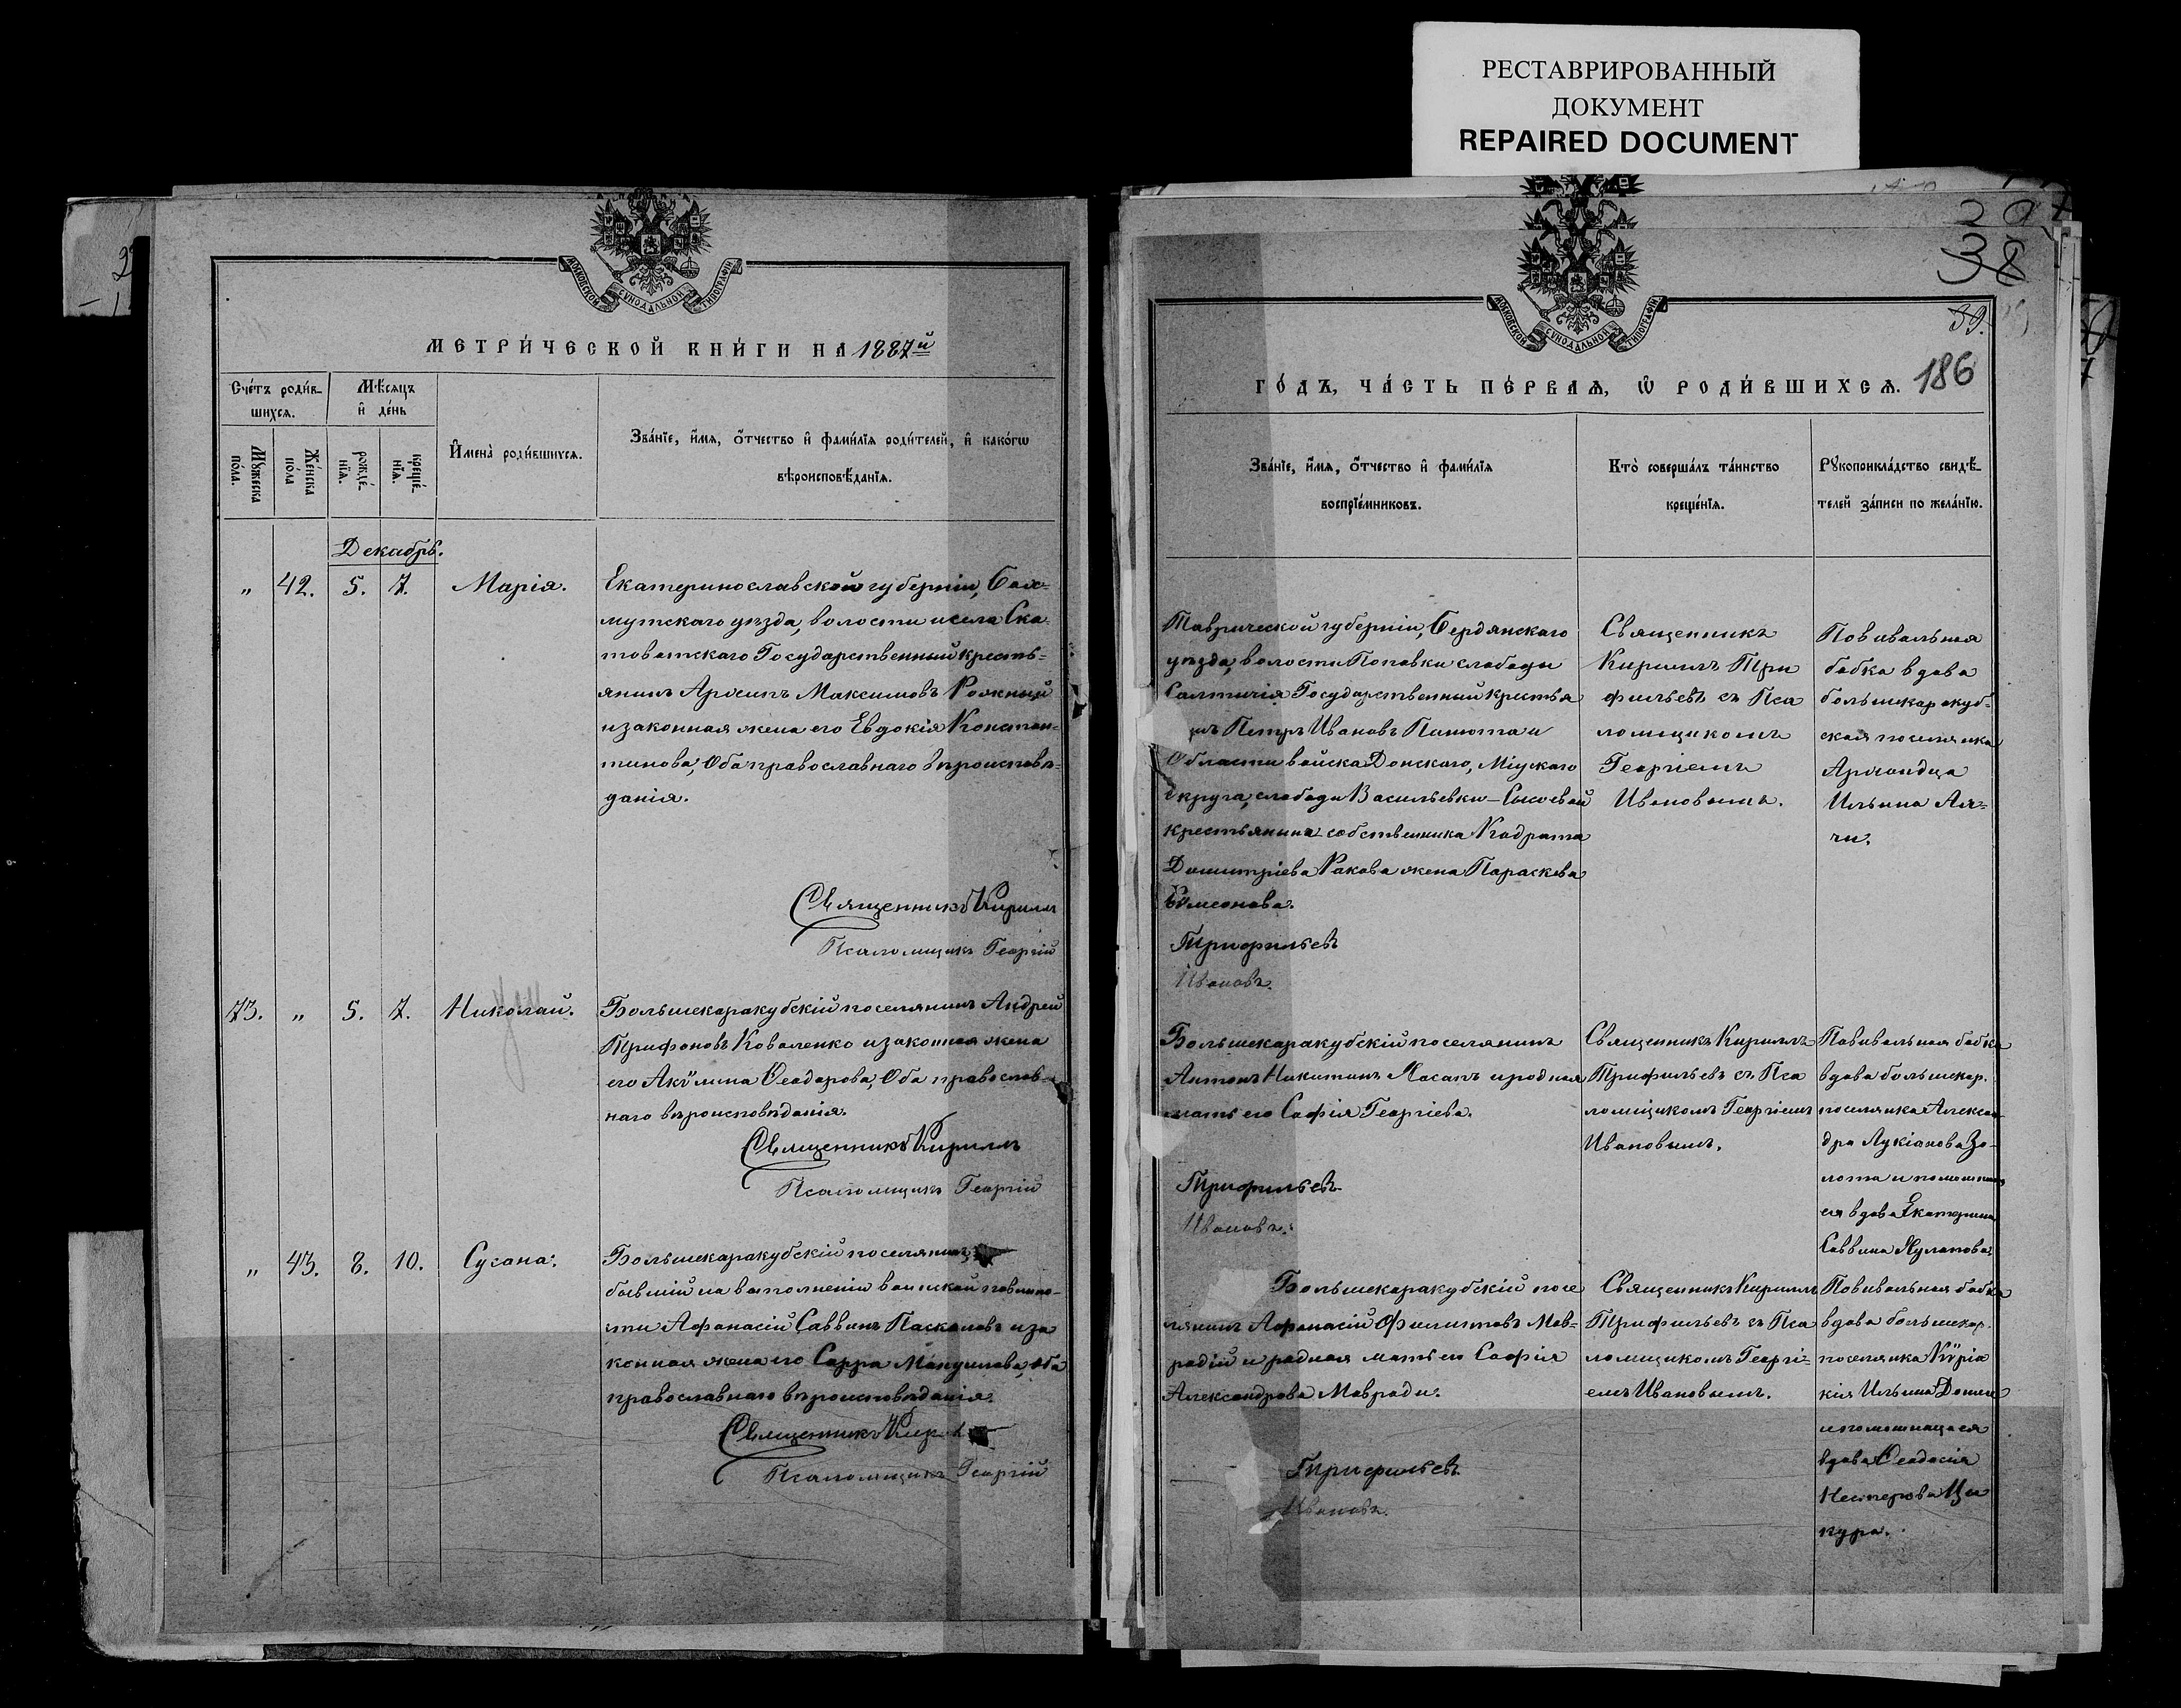 РЕСТАВРИРОВАННЫЙ
ДОКУМЕНТ
REPAIRED DOCUMENT
МОСКОВСКОЙ СУНОДАЛЬНОЙ ТИПОГРАФІИ
МЕТРИЧЕСКОЙ КНИГИ НА 1887й
Счетъ родив-
шихся.
Мѣсяцъ
и день
Мужеска
пола.
Женска
пола
рожде-
нія.
креще-
нія.
Имена родившихся.
Званіе, имя, отчество и фамилія родителей, и какогω
вѣроисповѣданія.
Декабрь.
„ 42. 5. 7. Марія.
Екатеринославской губерніи, Бах-
мутскаго уѣзда, волости и села Ска-
товатскаго Государственный кресть-
янинъ Архипъ Максимовъ Рожный
и законная жена его Евдокія Констан-
тинова, Оба православнаго вѣроисповѣ-
данія.
Священникъ Кириллъ
Псаломщикъ Георгій
73. „ 5. 7. Николай.
Большекаракубскій поселянинъ Андрей
Трифоновъ Коваленко и законная жена
его Акѵлина Ѳеодорова, Оба православ-
наго вѣроисповѣданія.
Священникъ Кириллъ
Псаломщикъ Георгій
„ 43. 8. 10. Сусана.
Большекаракубскій поселянинъ,
бывшій на выполненіи воинской повинно-
сти Афанасій Саввинъ Паскаловъ и за
конная жена его Сарра Мануилова, оба
православнаго вѣроисповѣданія.
Священникъ
Псаломщикъ Георгій
38
39.
186
МОСКОВСКОЙ СУНОДАЛЬНОЙ ТИПОГРАФІИ
ГОДЪ, ЧАСТЬ ПЕРВАЯ, Ѿ РОДИВШИХСЯ.
Званіе, имя, отчество и фамилія
воспріемниковъ.
Кто совершалъ таинство
крещенія.
Рукоприкладство свидѣ-
телей записи по желанію.
Таврической губерніи, Бердянскаго
уѣзда, волости Поповки слободы
Салтичія Государственный крестья
Петръ Ивановъ Панюта и
Области войска Донскаго, Міускаго
округа, слободы Васильевки-Сысоевой
крестьянина собственника Кадрата
Димитріева Ракова жена Параскева
Сѵмеонова.
Трифильевъ
Ивановъ.
Священникъ
Кириллъ Три
фильевъ съ Пса
ломщикомъ
Георгіемъ
Ивановымъ.
Повивальная
бабка вдова
большекаракуб-
ская поселянка
Ильина
Большекаракубскій поселянинъ
Антонъ Никитинъ Хасапъ и родная
мать его Софія Георгіева.
Трифильевъ
Ивановъ.
Священникъ Кириллъ
Трифильевъ съ Пса
ломщикомъ Георгіемъ
Ивановымъ.
Повивальная бабка
вдова большекар.
поселянка Алексан
дра Лукіанова Зо-
лота и помощница
ея вдова Екатерина
Саввина
Большекаракубскій посе
лянинъ Афанасій Филиповъ Мав-
родій и родная мать его Софія
Александрова Мавроди.
Трифильевъ
Ивановъ.
Священникъ Кириллъ
Трифильевъ съ Пса
ломщикомъ Георгі-
емъ Ивановымъ.
Повивальная бабка
вдова большекар.
поселянка Кѵріа
кія Ильина
и помощница ея
вдова Ѳеодосія
Нестерова Ци
кура.